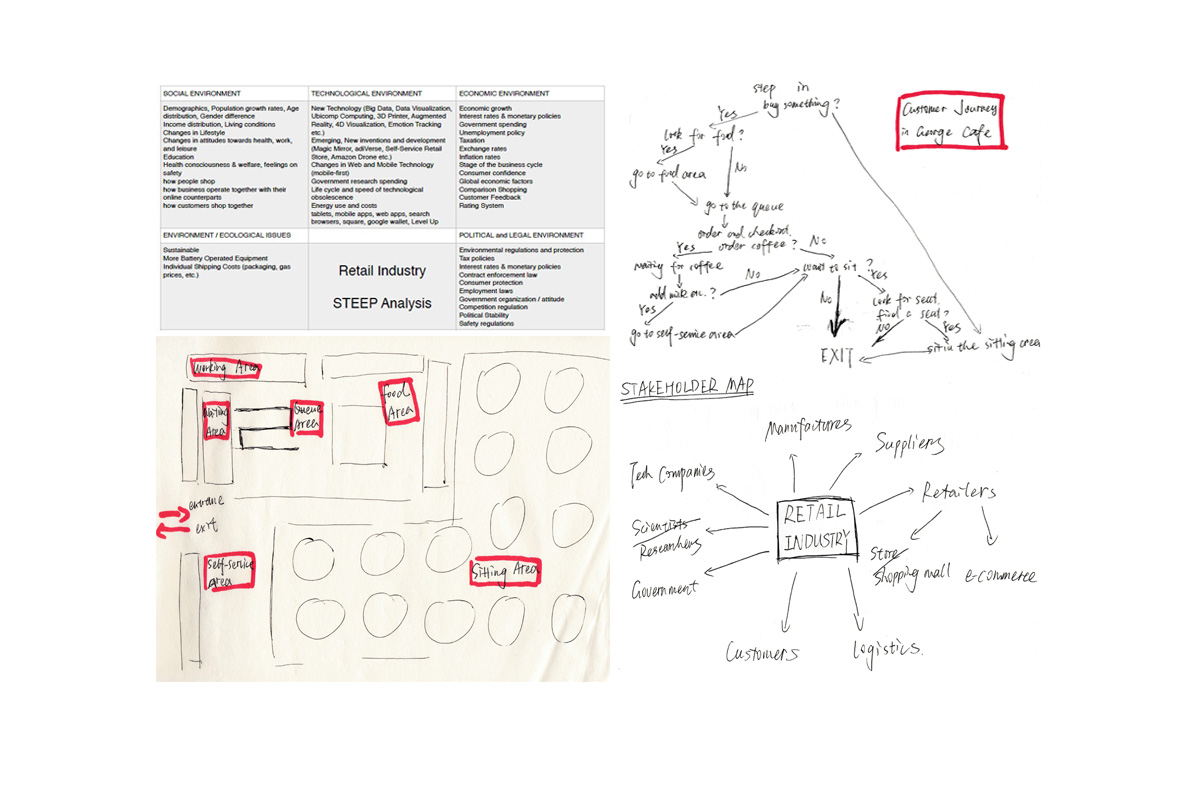 SOCIAL ENVIRONMENT
Demographics, Population growth rates, Age
distribution, Gender difference
Income distribution, Living conditions
Changes in Lifestyle
Changes in attitudes towards health, work,
and leisure
Education
Health consciousness & welfare, feelings on
safety
how people shop
how business operate together with their
online counterparts
how customers shop together
TECHNOLOGICAL ENVIRONMENT
New Technology (Big Data, Data Visualization,
Ubicomp Computing, 3D Printer, Augmented
Reality, 4D Visualization, Emotion Tracking
etc.)
Emerging, New inventions and development
(Magic Mirror, adiVerse, Self-Service Retail
Store, Amazon Drone etc.)
Changes in Web and Mobile Technology
(mobile-first)
Government research spending
Life cycle and speed of technological
obsolescence
Energy use and costs
tablets, mobile apps, web apps, search
browsers, square, google wallet, Level Up
ECONOMIC ENVIRONMENT
Economic growth
Interest rates & monetary policies
Government spending
Unemployment policy
Taxation
Exchange rates
Inflation rates
Stage of the business cycle
Consumer confidence
Global economic factors
Comparison Shopping
Customer Feedback
Rating System
ENVIRONMENT / ECOLOGICAL ISSUES
Sustainable
More Battery Operated Equipment
Individual Shipping Costs (packaging, gas
prices, etc.)
Retail Industry
STEEP Analysis
POLITICAL and LEGAL ENVIRONMENT
Environmental regulations and protection
Tax policies
Interest rates & monetary policies
Contract enforcement law
Consumer protection
Employment laws
Government organization / attitude
Competition regulation
Political Stability
Safety regulations
Customer Journey
in George Cafe
step in
buy something?
Yes
look for food?
Yes
No
go to food area
go to the queue
order and checkout.
order coffee?
Yes
No
waiting for coffee
want to sit?
No
Yes
add milk etc.?
Yes
No
look for seat.
find a seat?
No
Yes
go to self-service area
EXIT
sit in the sitting area
Working Area
Waiting
Area
Queue
Area
food
Area
entrance
exit
Self-service
Area
Sitting Area
STAKEHOLDER MAP
Manufactures
Suppliers
Tech Companies
Retailers
RETAIL
INDUSTRY
Scientists
Researchers
Store
shopping mall
e-commerce
Government
Customers
Logistics.